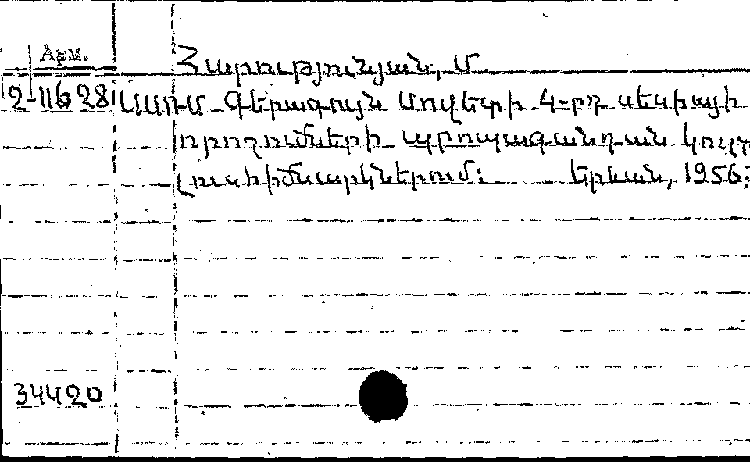 Арм.
Հարությունյան, Մ
2-11628 ՍՍՌՄ Գերագույն Սովետի 4-րդ սեսիայի
որոշումների պրոպագանդան կուլտ
լուսհիմնարկներում: Երևան, 1956:
34420